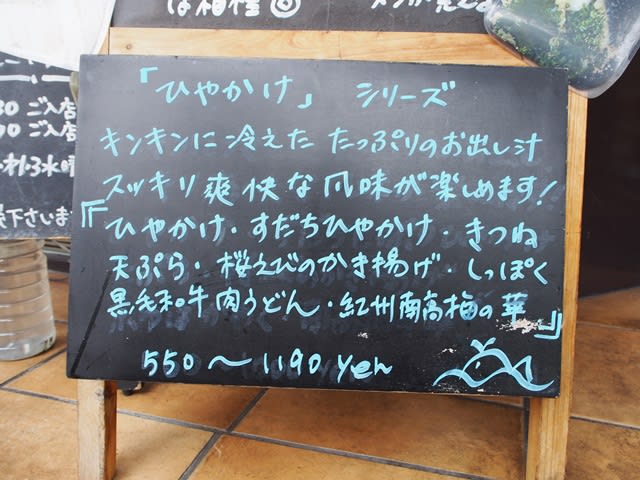 は相種
「ひやかけ」 シリーズ
キンキンに冷えた たっぷりのお出し汁
スッキリ爽快な風味が楽しめます!
『ひやかけ・すだちひやかけ・きつね
天ぷら・桜えびのかき揚げ・しっぽく
黒毛和牛肉うどん・紀州南高梅の華』
550〜1190yen
30 ご入店
00 ご入店
水曜
下さいませ